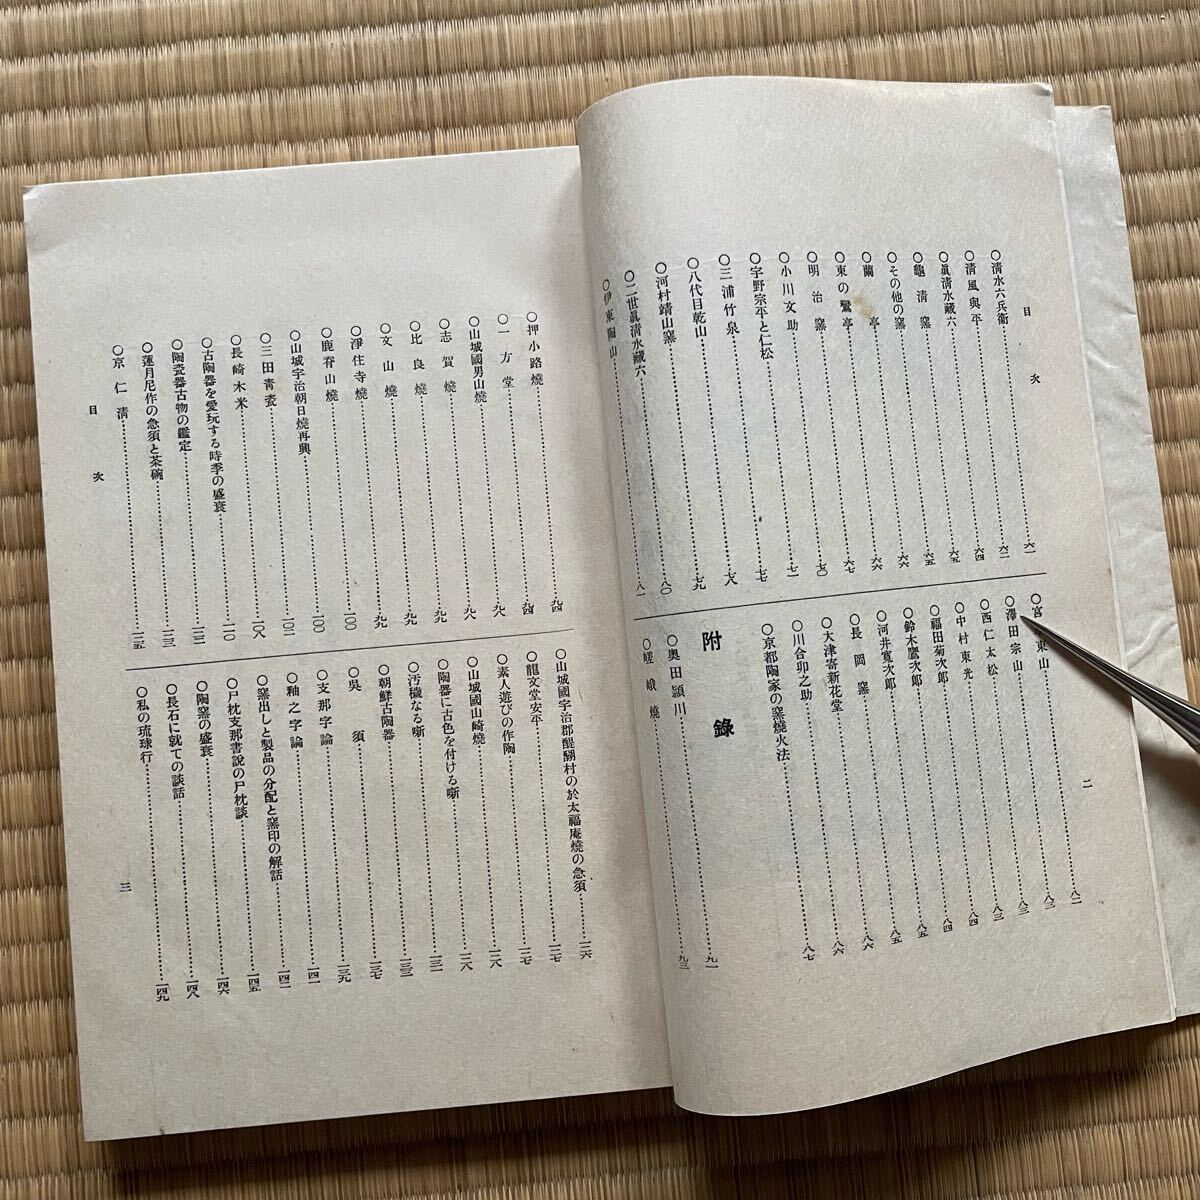 目次
二
〇清水六兵衛……六一
〇清風與平……六二
〇眞清水藏六……六四
〇龜清窯……六五
〇その他の窯……六五
〇蘭亭……六六
〇東の鷺亭……六六
〇明治窯……六七
〇小川文助……七〇
〇宇野宗平と仁松……七一
〇三浦竹泉……七七
〇八代目乾山……七八
〇河村靖山窯……七九
〇二世眞清水藏六……八〇
〇伊東陶山……八一
〇宮 東山……八二
〇澤田宗山……八三
〇西仁太松……八三
〇中村東光……八三
〇福田菊次郎……八四
〇鈴木鷹次郎……八四
〇河井寬次郎……八五
〇長岡窯……八五
〇大津寄新花堂……八六
〇川合卯之助……八六
〇京都陶家の窯燒火法……八七
附錄
〇奧田頴川……九一
〇嵯峨燒……九三
〇押小路燒……九四
〇一方堂……九四
〇山城國男山燒……九八
〇志賀燒……九八
〇比良燒……九九
〇文山燒……九九
〇淨住寺燒……九九
〇鹿脊山燒……一〇〇
〇山城宇治朝日燒再興……一〇〇
〇三田靑瓷……一〇二
〇長崎木米……一〇八
〇古陶器を愛玩する時季の盛衰……一一〇
〇陶瓷器古物の鑑定……一二二
〇蓮月尼作の急須と茶碗……一二三
〇京仁清……一二五
〇山城國宇治郡醍醐村の於太福庵燒の急須……一二六
〇龍文堂安平……一二七
〇素人遊びの作陶……一二七
〇山城國山崎燒……一二八
〇陶器に古色を付ける噺……一二八
〇汚穢なる噺……一三一
〇朝鮮古陶器……一三三
〇吳須……一三七
〇支那字論……一三九
〇釉之字論……一四一
〇窯出しと製品の分配と窯印の解話……一四二
〇尸枕支那書說の尸枕談……一四五
〇陶窯の盛衰……一四六
〇長石に就ての談話……一四八
〇私の琉球行……一四九
目次
三